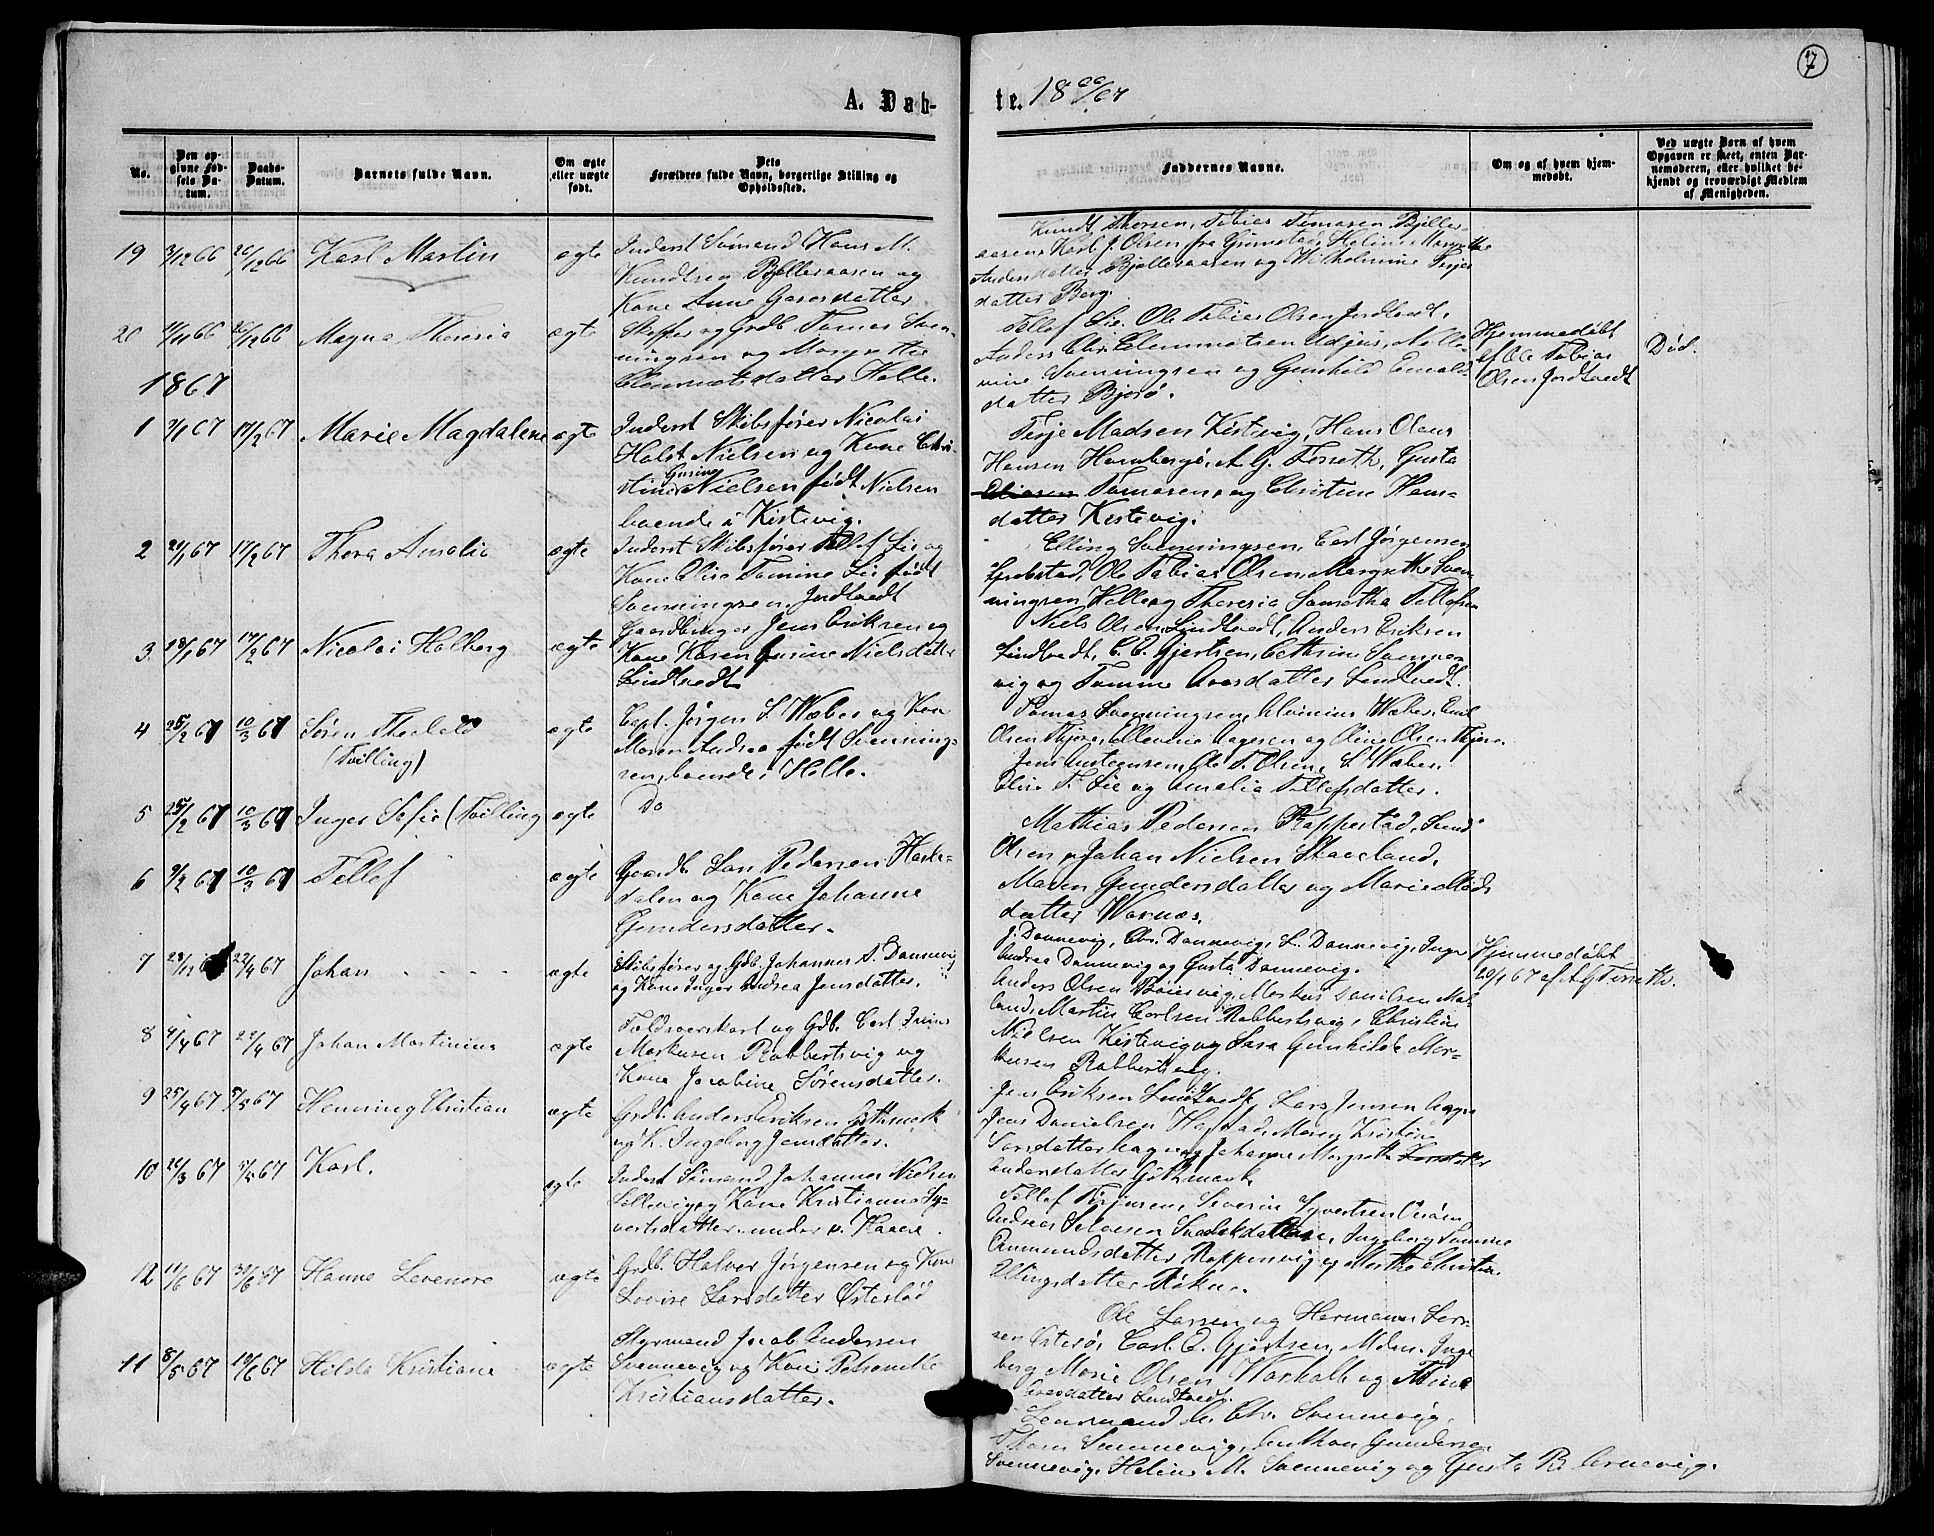 7
A. Døb-
te. 18 66/67
No.
Den op-
givne Fød-
sels Da-
tum.
Daabs-
Datum.
Barnets fulde Navn.
Om ægte
eller uægte
født.
Dets
Forældres fulde Navn, borgerlige Stilling og
Opholdssted.
Faddernes Navne.
Om og af hvem hjem-
medøbt.
Ved uægte Børn af hvem
Opgaven er skeet, enten Bar-
nemoderen, eller hvilket be-
kjendt og troværdigt Medlem
af Menigheden.
19 3/12 66 26/12 66 Karl Martin ægte
Inderst Sømand Hans M.
Knudtsen Bjelleraasen og
Kone Anne Garosdatter.
Knudt Thorsen, Tobias Tomasen Bjeller-
aasen, Karl J. Olsen fra Grimstad, Heline Margrethe
Andersdatter Bjelleraasen og Wilhelmine Terjes-
datter Berg.
20 26/12 66 Magna Theresia ægte
Skipper og Grdb. Tomas Sven-
ningsen og Margrethe
Clemmetsdatter Helle.
Tellef Lie, Ole Tobias Olsen Jordtvedt,
Anders Chr. Clemmetsen Udjus,
Svenningsen og Gunhild
datter Bjorø.
Hjemmedøbt
af Ole Tobias
Olsen Jordtvedt
Død.
1867
1 3/1 67 17/2 67 Marie Magdalene ægte
Inderst Skibsfører Nicolai
Holst Nielsen og Kone Chri-
stine Gusine Nielsen født Nielsen
boende i Kistevig.
Terje Madsen Kistevig, Hans Olaus
Hansen Hombergø, A. G. Terseth, Gusta
Tomasen, og Christine Hans-
datter Kistevig.
2 21/1 67 17/2 67 Thora Amalie ægte
Inderst Skibsfører Tellef Lie og
Kone Olise Tomine Lie født
Svenningsen Jordtvedt
Elling Svenningsen, Carl Jørgensen
Grebstad, Ole Tobias Olsen, Margrethe Sven-
ningsen Helle og Theresia Samatha Tellefsen
3 18/1 67 17/2 67 Nicolai Holberg ægte
Gaardbruger Jens Eriksen og
Kone Karen Gusine Nielsdatter
Lindtvedt
Niels Olsen Lindtvedt, Anders Eriksen
Lindtvedt, C. E. Gjertsen, Cathrine Svenne-
vig og Tomine Aasdatter Lindtvedt.
4 25/2 67 10/3 67 Søren Theobald ægte
(Tvilling)
Capt. Jørgen S. Wæber og Kone
Maren Andrea født Svenning-
sen, boende i Helle.
Tomas Svenningsen, Alvinius Wæber, Emil
Olsen Thjore, Ellevine Aagesen og Oline Olsen Thjore.
5 25/2 67 10/3 67 Inger Sofie (Tvilling) ægte
Do
Jens Austensen, Ole T. Olsen, S. Wæber,
Olise T. Lie og Amalia Tellefsdatter.
6 9/2 67 10/3 67 Tellef ægte
Gaardb. Lars Pedersen Haske-
dalen og Kone Johanne
Gundersdatter.
Mathias Pedersen Rappestad, Svend
Olsen og Johan Nielsen Staveland,
Maren Gundersdatter og Marie Mads-
datter Wornæs.
7 22/4 67 Johan ægte
Skibsfører og Gdb. Johannes S. Dannevig
og Kone Inger Andrea Jensdatter.
J. Dannevig, Chr. Dannevig, L. Dannevig, Inger
Andrea Dannevig og Gusta Dannevig.
Hjemmedøbt
20/1 67 af A. G. Terseth.
8 4/4 67 22/4 67 Johan Martinius ægte
Toldroerskarl og Gdb. Carl
Markusen Robbertsvig og
Kone Jacobine Sørensdatter.
Anders Olsen Bøiesvig, Markus Danielsen Mæl-
land, Martin Carlsen Robbertsvig, Christine
Nielsen Kistevig og Sara Gunhilde Mar-
kusen Robbertsvig.
9 25/4 67 5/5 67 Henning Christian ægte
Grdb. Anders Eriksen Githmark
og K. Ingeborg Jensdatter.
Jens Eriksen Lindtvedt, Lars Jensen Aagre
Jens Danielsen Hæstad, Maren Kristine
Larsdatter Aagre og Johanne Margrethe
Andersdatter Githmark
10 26/3 67 5/5 67 Karl. ægte
Inderst Sømand Johannes Nielsen
Sollevig og Kone Kristianne Sy-
vertsdatter under p. Haave.
Tellef Terjesen, Severin Syvertsen
Andreas Salvesen Ingeborg Tomine
Aanmundsdatter Roppenvig og Marthe Christine
Ellingsdatter Røkne.
12 11/6 67 30/6 67 Hanne Levenore ægte
Grdb. Halvor Jørgensen og Kone
Lovise Larsdatter Østestad
Ole Larsen og Hermann Lar-
sen Osterø, Carl E. Gjertsen, Mdm. Inge-
borg Marie Olsen Warhalt og Mine
Aresdatter Lindtvedt.
11 8/5 67 10/6 67 Hilda Kristiane ægte
Styrmand Jacob Andersen
Svennevig og Kone Petronelle
Kristiansdatter.
Lensmand A. Chr. Svennevig,
Thom Svennevig, Anthon Gundersen
Svennevig, Heline M. Svennevig og Gusta B. Arnevig.